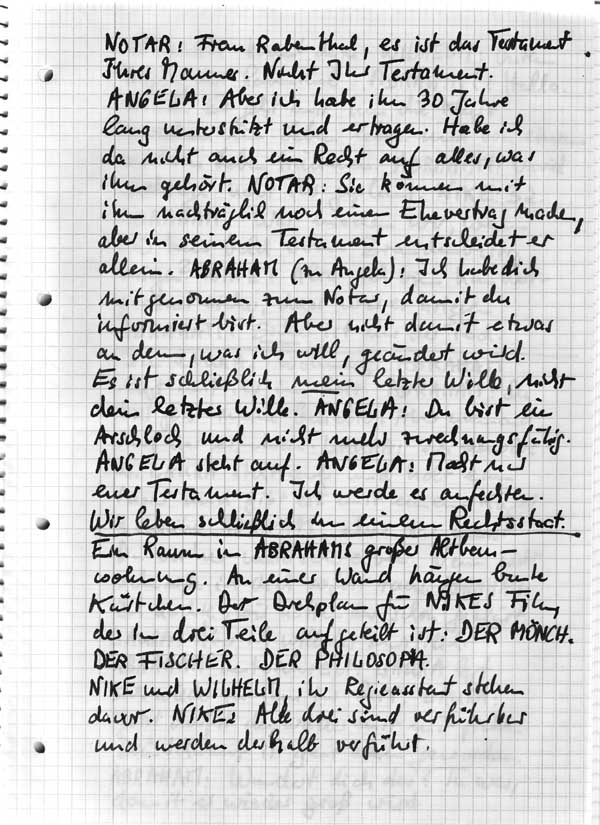 NOTAR: Frau Rabenthal, es ist das Testament
Ihres Mannes. Nicht Ihr Testament.
ANGELA: Aber ich habe ihn 30 Jahre
lang unterstützt und ertragen. Habe ich
da nicht auch ein Recht auf alles, was
ihm gehört. NOTAR: Sie können mit
ihm nachträglich noch einen Ehevertrag machen,
aber in seinem Testament entscheidet er
allein. ABRAHAM (zu Angela): Ich habe dich
mitgenommen zum Notar, damit du
informiert bist. Aber nicht damit etwas
an dem, was ich will, geändert wird.
Es ist schließlich mein letzter Wille, nicht
dein letzter Wille. ANGELA: Du bist ein
Arschloch und nicht mehr zurechnungsfähig.
ANGELA steht auf. ANGELA: Macht nur
euer Testament. Ich werde es anfechten.
Wir leben schließlich in einem Rechtsstaat.
Ein Raum in ABRAHAMS großer Altbau-
wohnung. An einer Wand hängen bunte
Kärtchen. Der Drehplan für NIKES Film,
der in drei Teile aufgeteilt ist: DER MÖNCH.
DER FISCHER. DER PHILOSOPH.
NIKE und WILHELM, ihr Regieassistent stehen
davor. NIKE: Alle drei sind verführbar
und werden deshalb verführt.